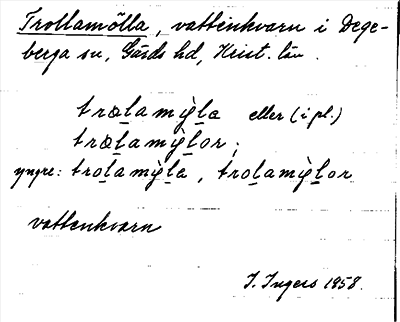 Trollamölla, vattenkvarn i Dege-
berga sn, Gärds hd, Krist. län.
trœlamỳ̀la eller (i pl.)
trœlamỳlor;
yngre: trolamỳla, trolamỳlor
vattenkvarn
I. Ingers 1958.